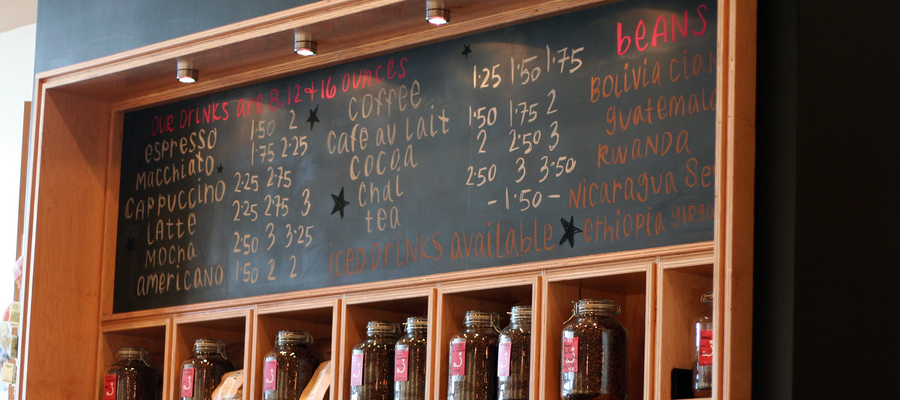 OUR DRINKS are 8, 12 & 16 ounces
espresso 1.50 2
Macchiato 1.75 2.25
CAPPUCCINO 2.25 2.75
LATTE 2.25 2.75 3
MOCHA 2.50 3 3.25
americano 1.50 2 2
COFFEE 1.25 1.50 1.75
cafe au lait 1.50 1.75 2
COCOA 2 2.50 3
CHAI 2.50 3 3.50
tea -1.50-
ICED DRINKS available
beans
BOLIVIA
guatemala
RWANDA
NICARAGUA
ethiopia
3
3
3
3
3
3
3
3
3